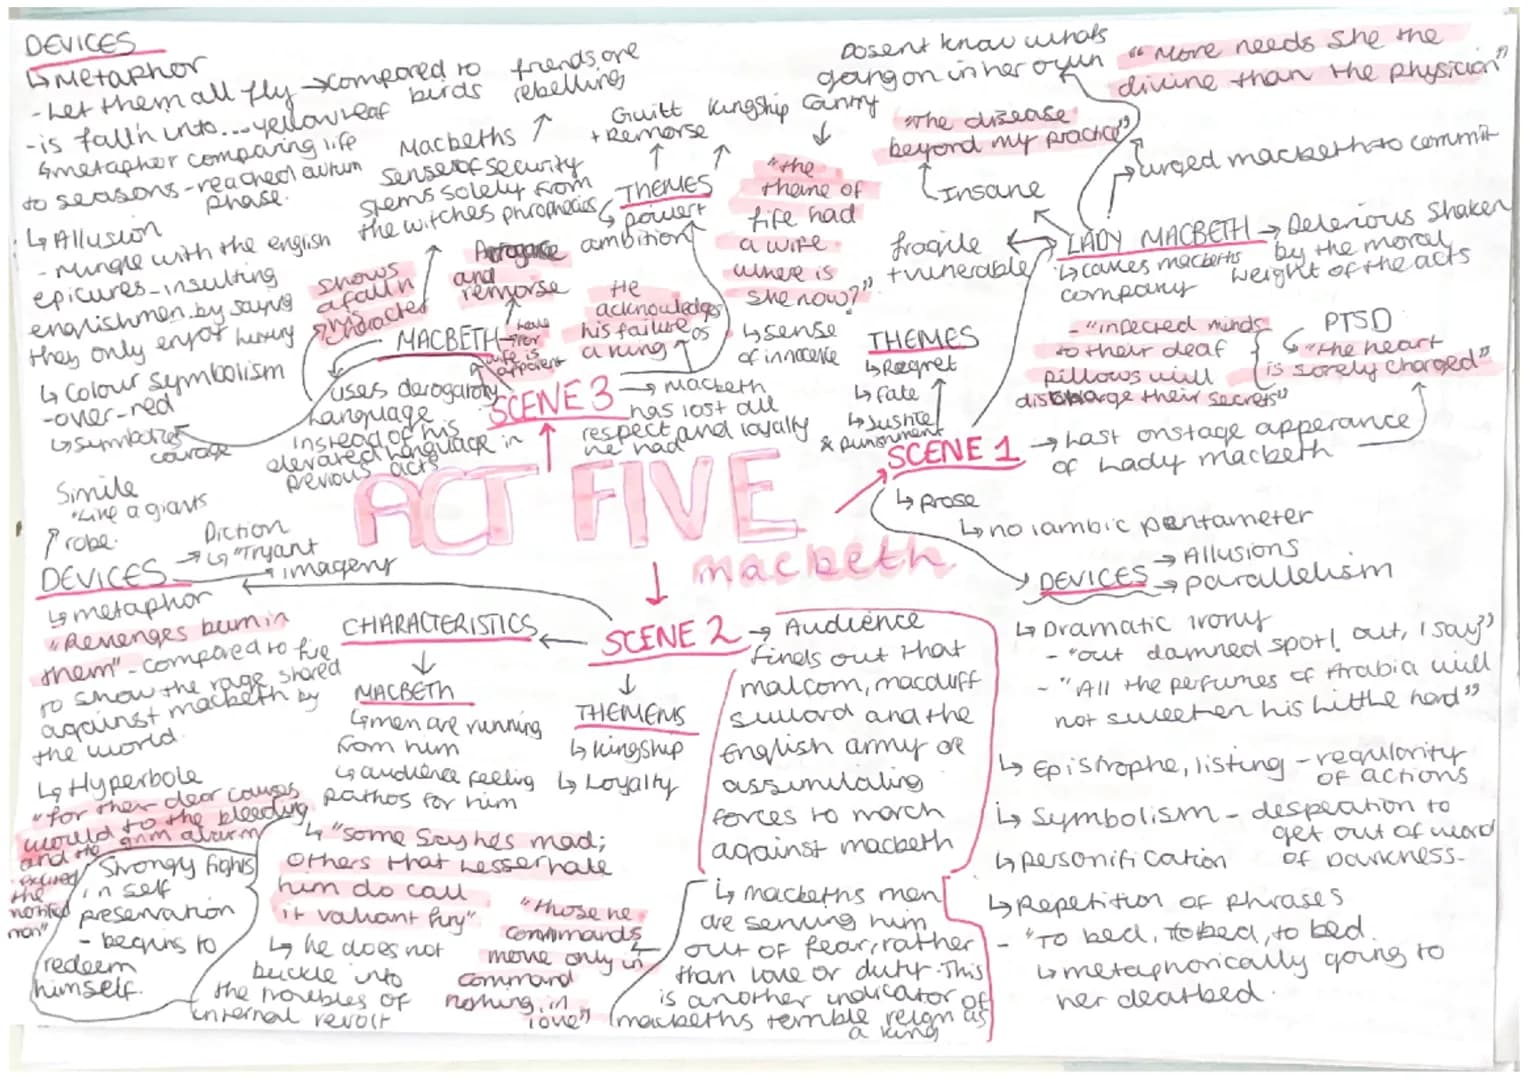 DEVICES
↳Metaphor
- Let them all fly → compared to birds
friends are rebelling
- is falln into... yellow leaf
↳metapher comparing life
to seasons - reached autum
phase.
↳ Allusion
- Mingle with the english
epicures - insulting
englishmen by saying
they only enjoy luxury
↳ Colour symbolism
- over-red
↳symbolizes
courage
Macbeths
sense of security
stems solely from
the witches prophecies
shows
a falln
character
and
remorse
MACBETH
uses derogatory
language
instead of his
elevated language in
previous acts
THEMES
↳ power +
ambition
Guilt
+ Remorse
Kingship
He
acknowledges
his failure as
a king
SCENE 3
→ Macbeth
has lost all
respect and loyalty
he had
canny
"the
thane of
fife had
a wife
where is
she now?"
↳ sense
of innocence
Dosent know whats
going on in her own
"More needs she the
divine than the physician"
"The disease
beyond my practice"
Insane
urged macbeth to commit
fragile
+ vulnerable
LADY MACBETH → Delerious shaken
by the moral
weight of the acts
company
- "infected minds
to their deaf
pillows will
discharge their secrets"
PTSD
↳ "the heart
is sorely charged"
THEMES
↳ Regret
↳ fate
↳ Justice
& punishment
SCENE 1 → Last onstage apperance
of Lady macbeth
↳ prose
↳ no iambic pentameter
DEVICES → Allusions
→ parallelism
↳ Dramatic irony
- "out damned spot! out, I say"
- "All the perfumes of Arabia will
not sweeten his little hand"
↳ Epistrophe, listing - regularity
of actions
↳ Symbolism - despeation to
get out of
of Darkness-
↳ personification
↳ Repetition of phrases
- "To bed, to bed, to bed.
↳ metaphorically going to
her deatbed.
ACT FIVE
macbeth
Simile
"Like a giants
robe.
Diction
↳ "Tryant
DEVICES
imagery
↳ metaphor
"Revenges burn in
them" - compared to fire
to show the rage shared
against macbeth by
the world.
↳ Hyperbole
"for their dear causes
would to the bleeding
and the grim alarm
the
Strongy fights
in self
preservation
- begins to
redeem
himself.
CHARACTERISTICS
MACBETH
↳men are running
from him
↳ audience feeling
pathos for him
↳ "some say hes mad;
others that lesser hate
him do call
it valiant fury"
↳ he does not
buckle into
the troubles of
internal revolt
"those he
commands
move only in
command
nothing in
love"
SCENE 2 → Audience
finds out that
malcom, macduff
and the
English army are
forces to march
against macbeth
THEMENS
↳ kingship
↳ Loyalty
↳ macbeths men
are serving him
out of fear, rather
than love or duty. This
is another indicator of
macbeths terrible reign as
a king